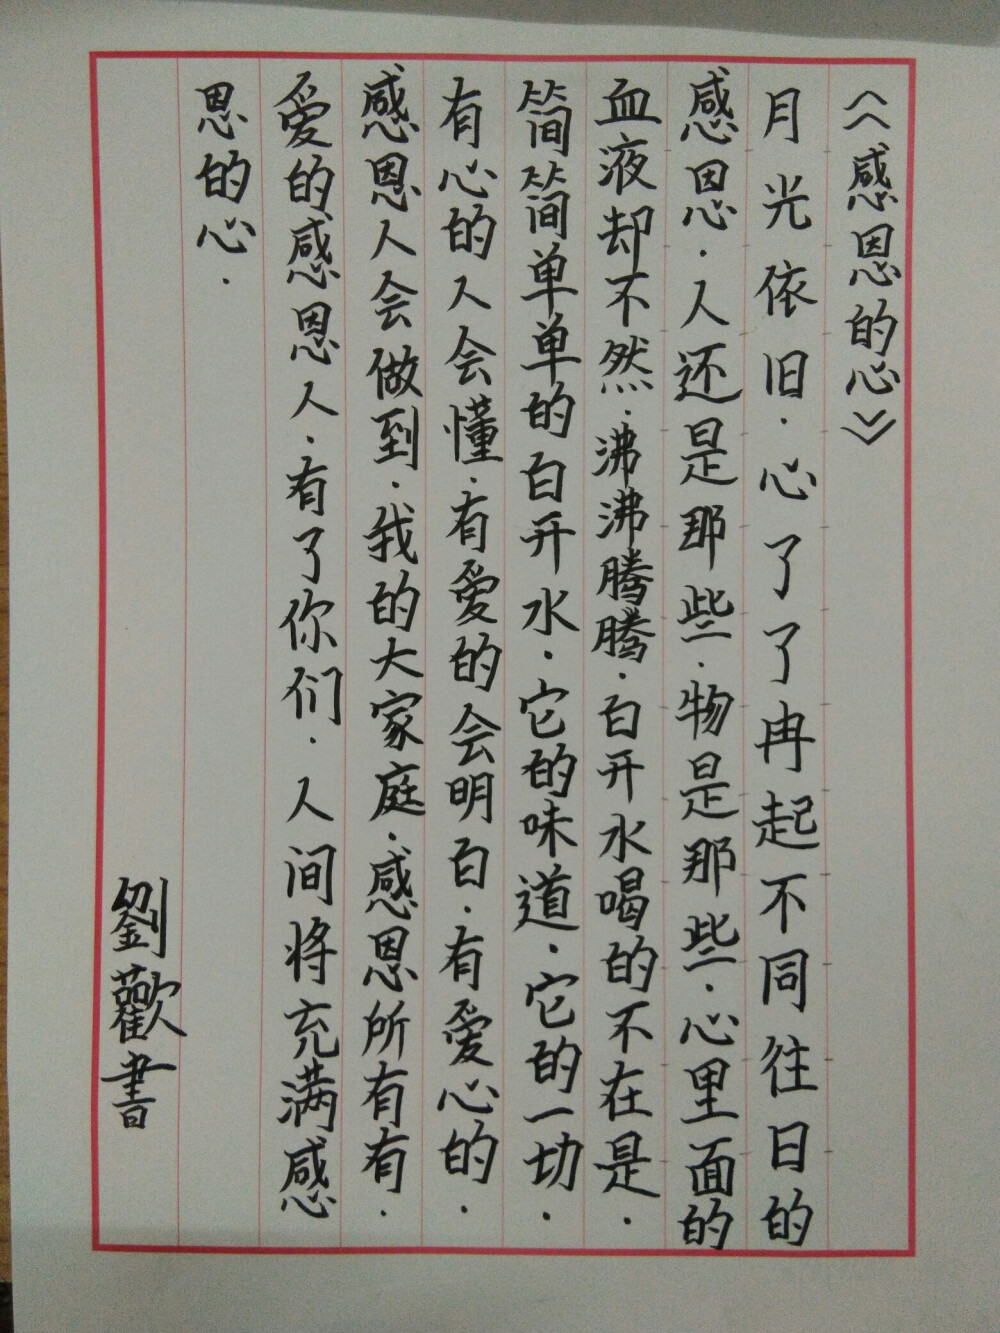 《感恩的心》
月光依旧.心了了冉起不同往日的
感恩.人还是那些.物是那些.心里面的
血液却不然.沸沸腾腾.白开水喝的不在是.
简简单单的白开水.它的味道.它的一切.
有心的人会懂.有爱的会明白.有爱心的.
感恩人会做到.我的大家庭.感恩所有有.
爱的感恩人.有了你们.人间将充满感
恩的心.
劉歡書